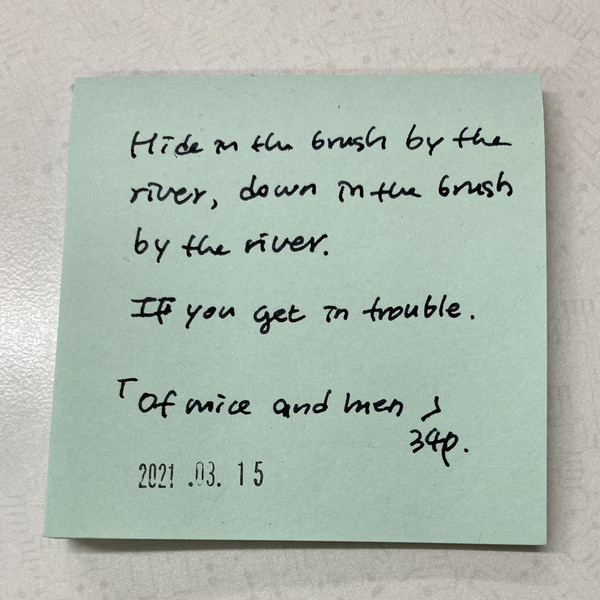 Hide in the brush by the
river, down in the brush
by the river.
If you get in trouble.
「Of mice and men」
34p.
2021 .03. 15